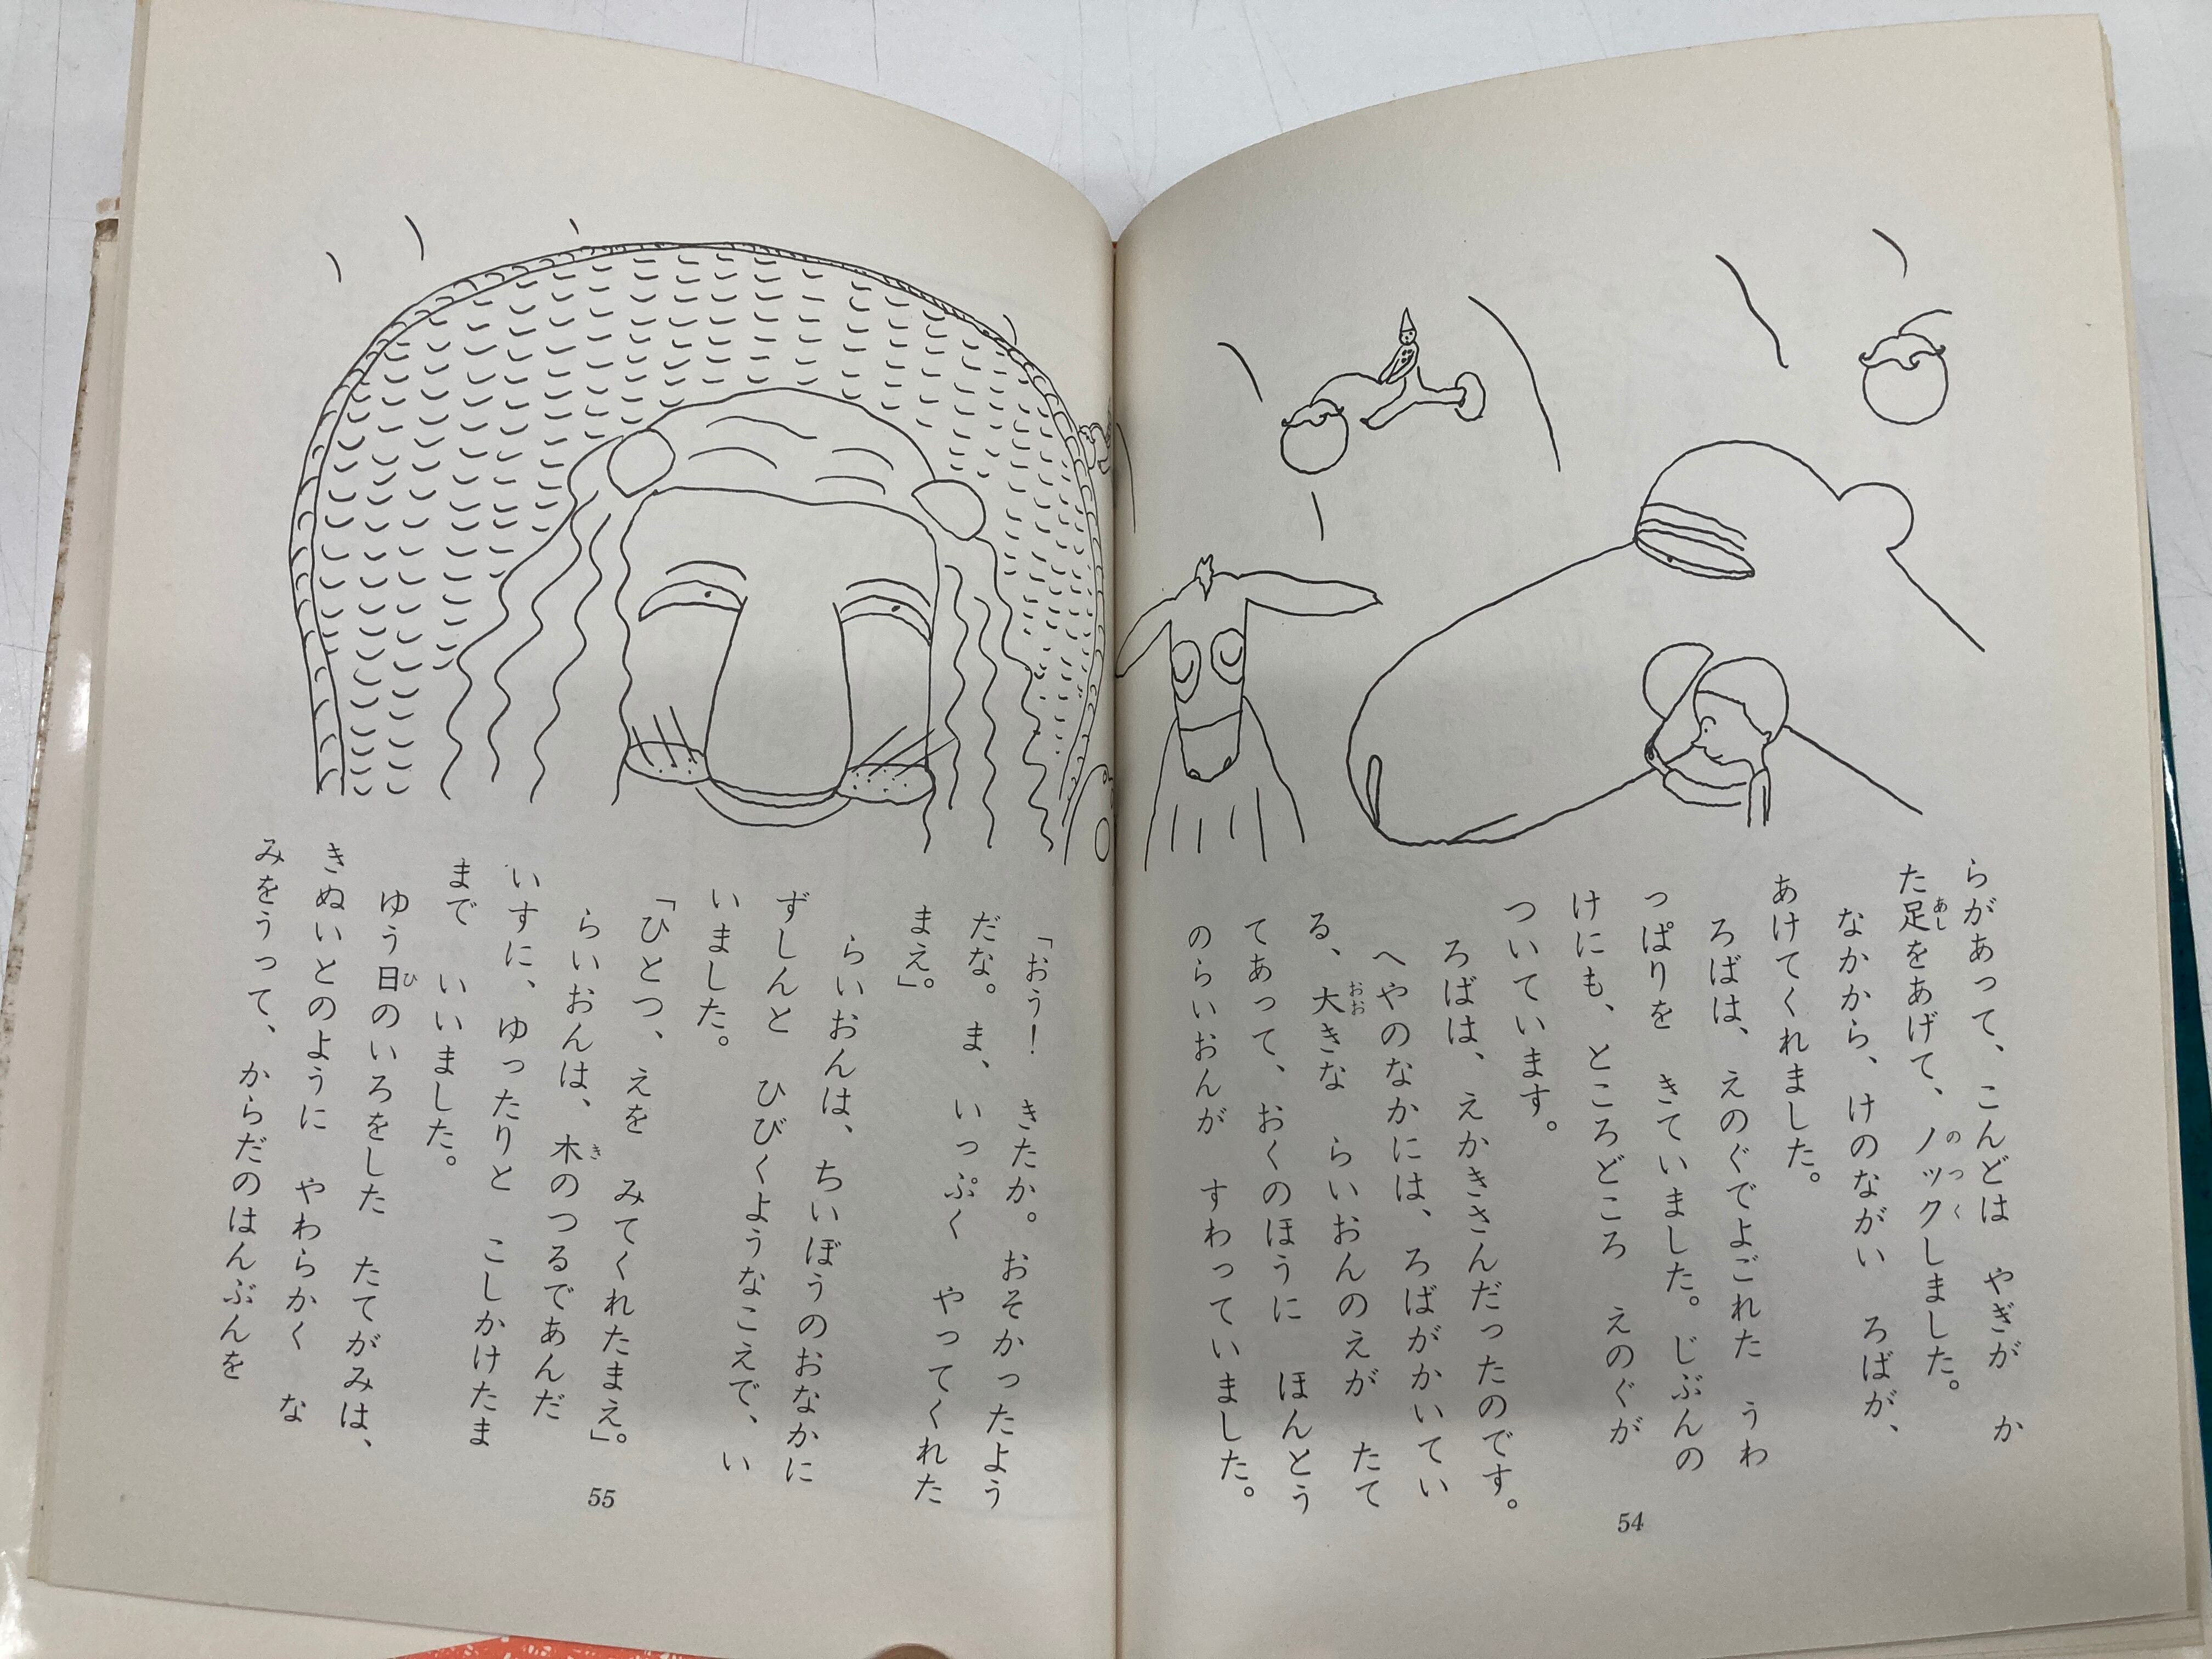 らがあって、こんどは　やぎが　か
た足をあげて、ノックしました。
なかから、けのながい　ろばが、
あけてくれました。
ろばは、えのぐでよごれた　うわ
っぱりを　きていました。じぶんの
けにも、ところどころ　えのぐが
ついています。
ろばは、えかきさんだったのです。
へやのなかには、ろばがかいてい
る、大きな　らいおんのえが　たて
てあって、おくのほうに　ほんとう
のらいおんが　すわっていました。
54
「おう！　きたか。おそかったよう
だな。ま、いっぷく　やってくれた
まえ」。
らいおんは、ちいぼうのおなかに
ずしんと　ひびくようなこえで、い
いました。
「ひとつ、えを　みてくれたまえ」。
らいおんは、木のつるであんだ
いすに、ゆったりと　こしかけたま
まで　いいました。
ゆう日のいろをした　たてがみは、
きぬいとのように　やわらかく　な
みをうって、からだのはんぶんを
55